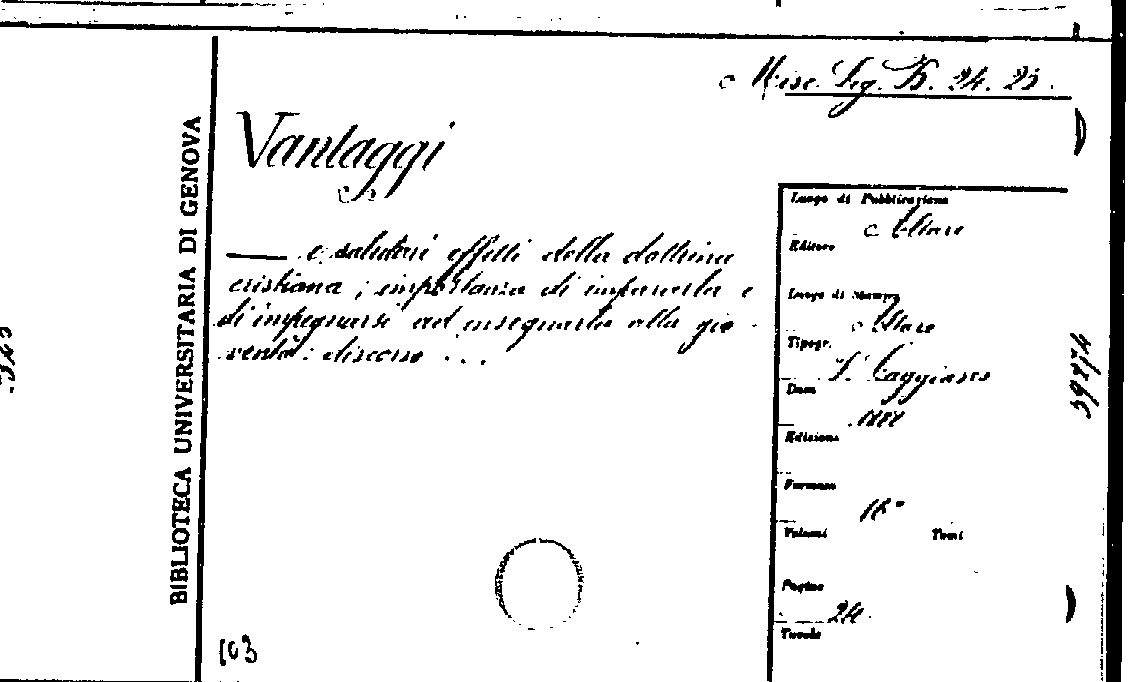 Misc. Lig. B. 24. 23.
Vantaggi
— e salutari effetti della dottrina
cristiana; importanza di impararla e
di impegnarsi ad insegnarla alla gio-
ventù: discorso ...
BIBLIOTECA UNIVERSITARIA DI GENOVA
Luogo di Pubblicazione
Altare
Editore
Luogo di Stampa
Altare
Tipogr.
Data
Edizione
Formato
16°
Volumi Tomi
Pagine
24.
Tavole
103